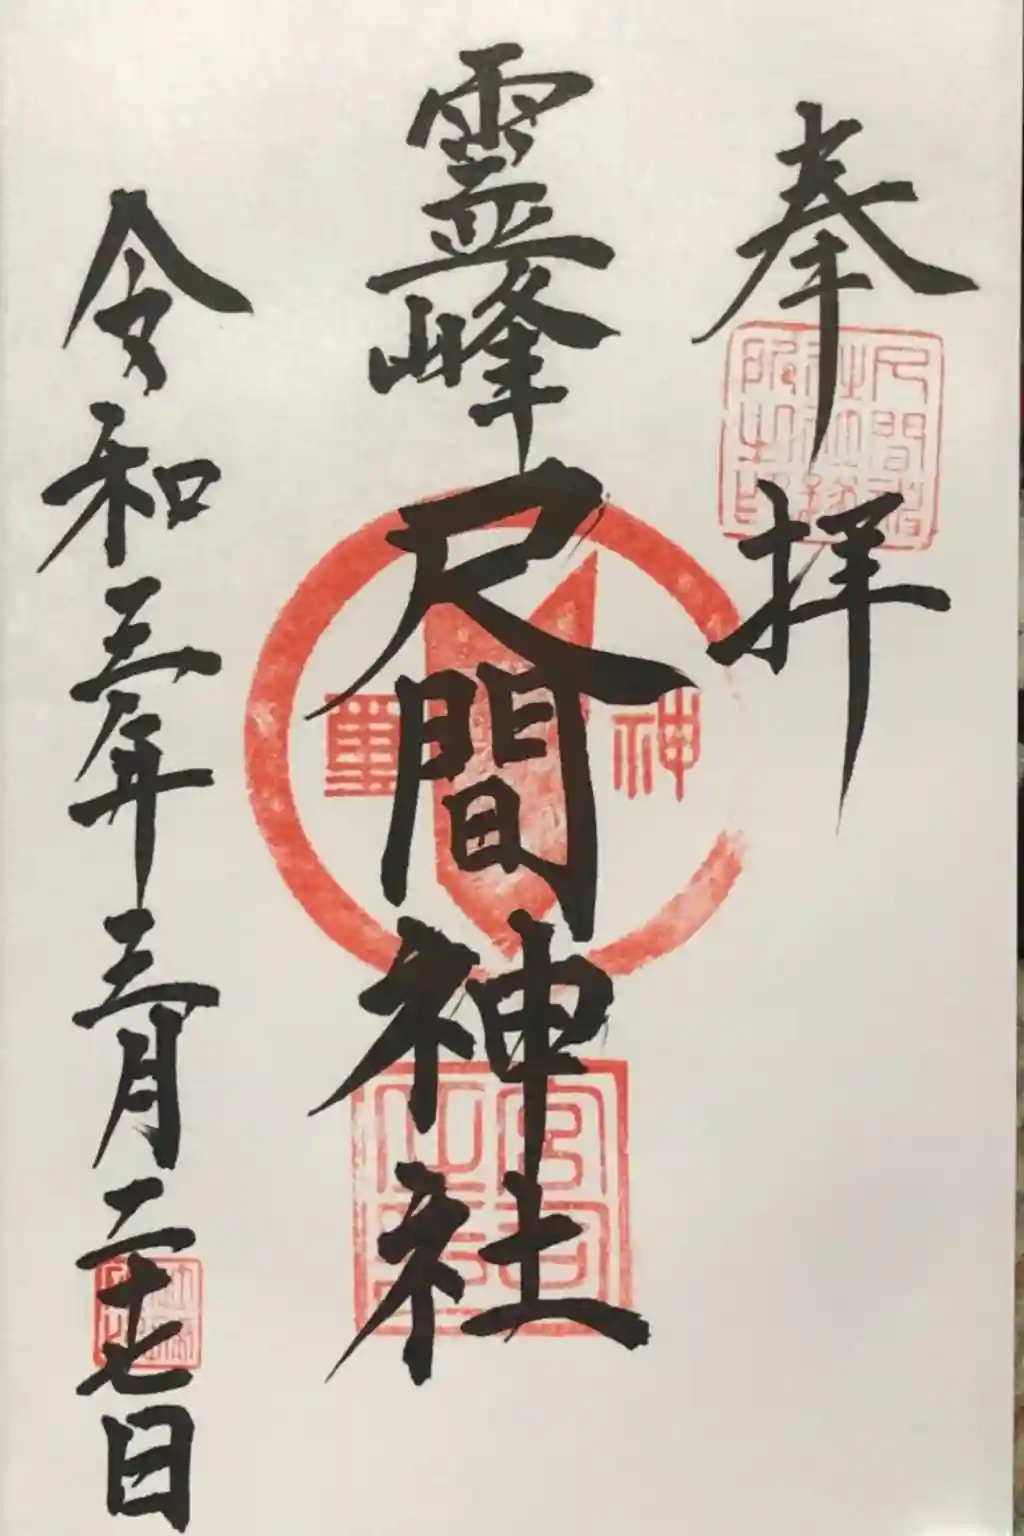 奉拝
霊峰
尺間神社
令和三年三月二十七日
神